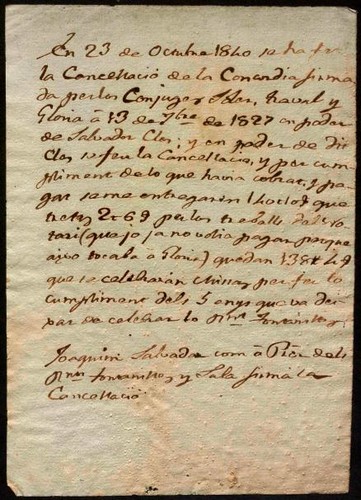 En 23 de Octubre 1840 se ha fet
la Cancellació de la Concordia firma
da per los Conjuges Raval y
Gloria á 13 de 7bre de 1827 en poder
de Salvador Clos; y en poder de dit
Clos se feu la Cancellacio, y per cum
pliment de lo que havia cobrat, y pa
gat se me entregaren que
tret 2 69 per los treballs del No
tari (que jo ja no volia pagar perque
aixo tocaba á Gloria) quedan 138
que se celebraran Missas per fer lo
cumpliment dels 5 anys que va dei
xar de celebrar lo
Joaquim Salvador com á Pror dels
y Sala firmá la
Cancellació